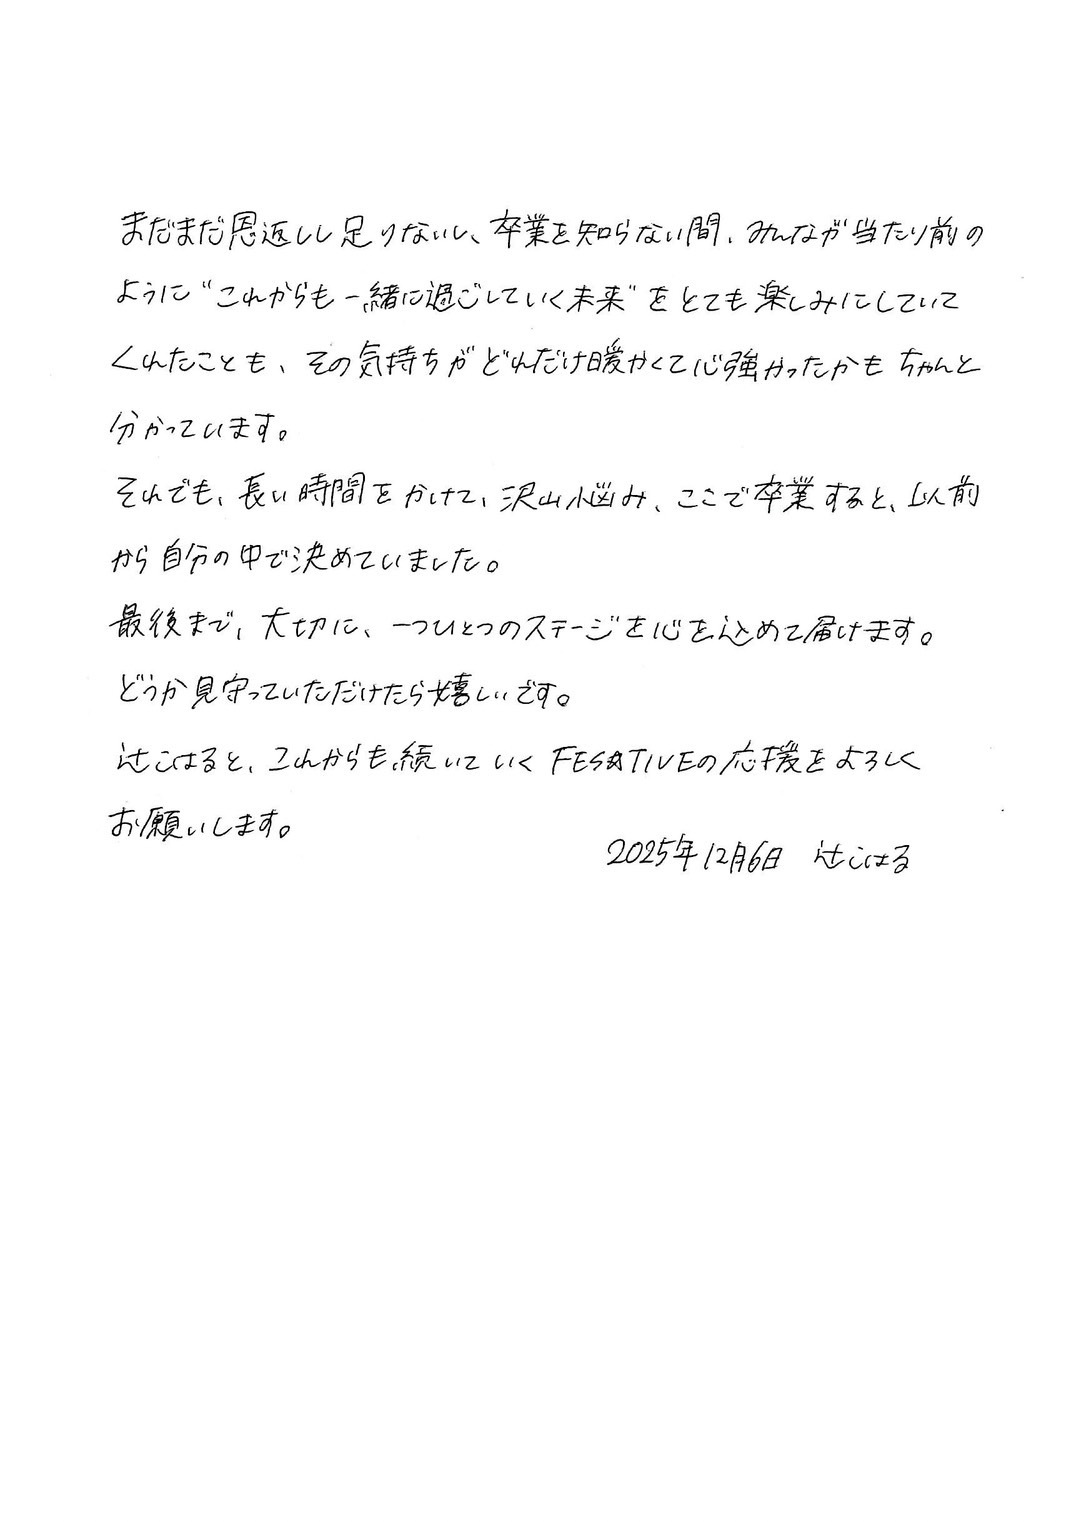 まだまだ恩返しし足りないし、卒業を知らない間、みんなが当たり前の
ように“これからも一緒に過ごしていく未来”をとても楽しみにしていて
くれたことも、その気持ちがどれだけ暖かくて心強かったかもちゃんと
分かっています。
それでも、長い時間をかけて、沢山悩み、ここで卒業すると、以前
から自分の中で決めていました。
最後まで、大切に、一つひとつのステージを心を込めて届けます。
どうか見守っていただけたら嬉しいです。
辻こはると、これからも続いていくFES☆TIVEの応援をよろしく
お願いします。
2025年12月6日 辻こはる